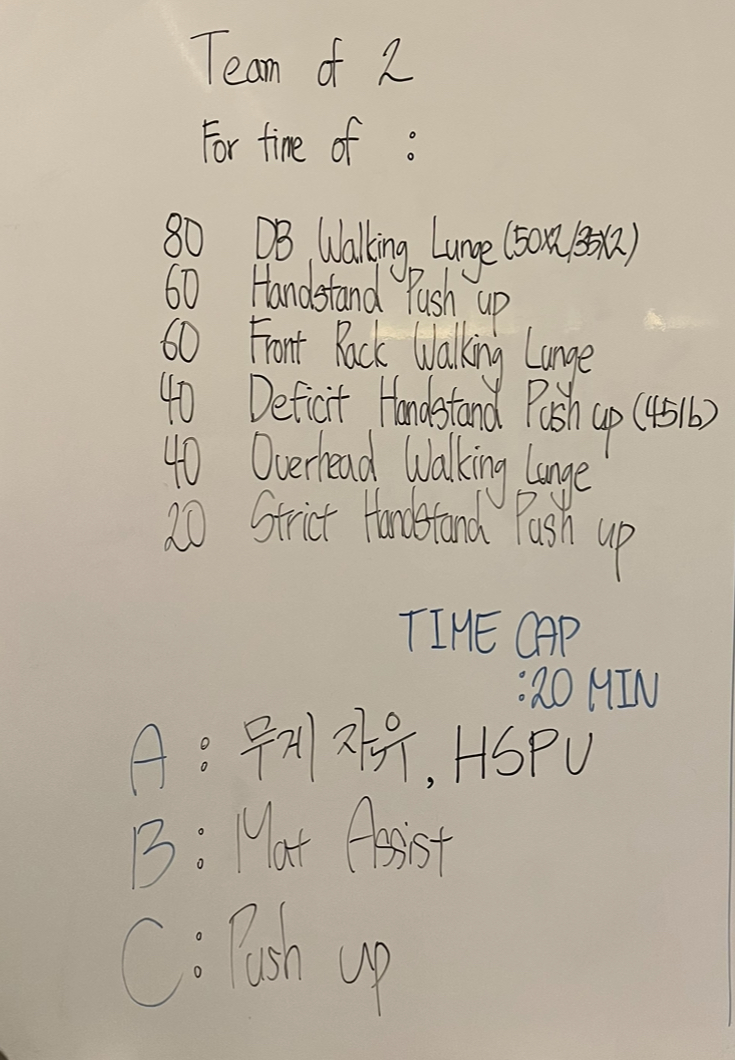 Team of 2
For time of :
80 DB Walking Lunge (50x2/35x2)
60 Handstand Push up
60 Front Rack Walking Lunge
40 Deficit Handstand Push up (45lb)
40 Overhead Walking Lunge
20 Strict Handstand Push up
TIME CAP
:20 MIN
A : 무게 자유, HSPU
B : Mat Assist
C : Push up